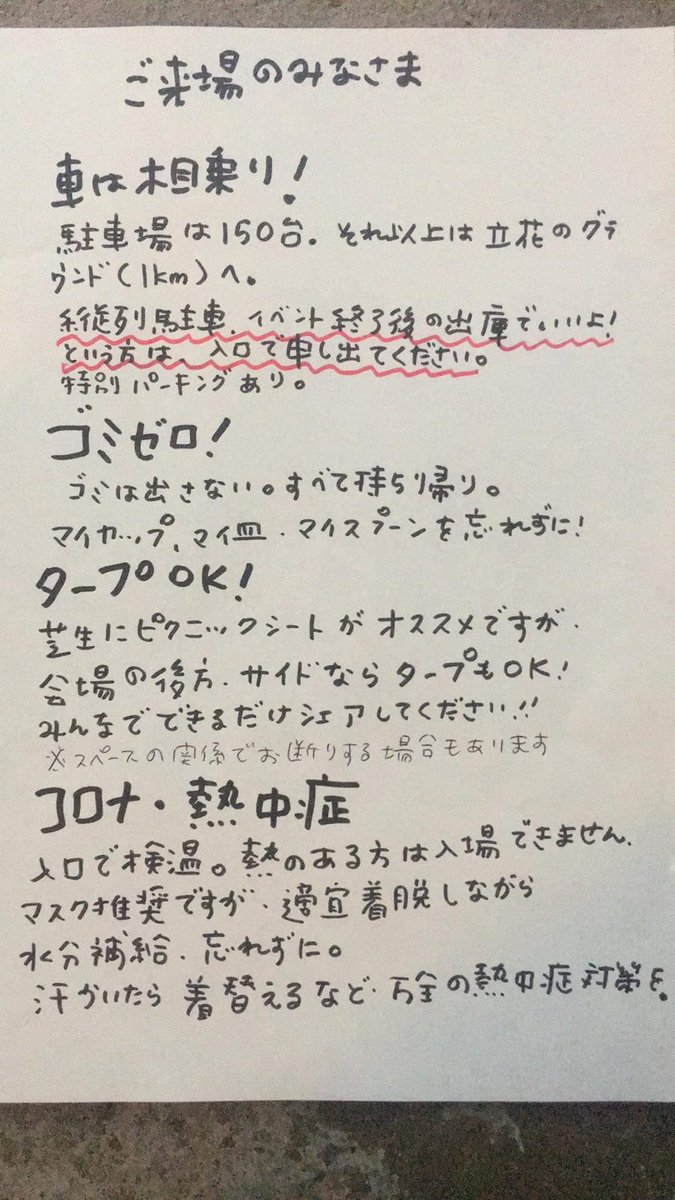 ご来場のみなさま
車は相乗り!
駐車場は150台. それ以上は立花のグラ
ウンド(1km)へ。
縦列駐車、イベント終了後の出庫でいいよ!
という方は、入口で申し出てください。
特別パーキングあり。
ゴミゼロ!
ゴミは出さない。すべて持ち帰り。
マイカップ、マイ皿・マイスプーンを忘れずに!
タープOK!
芝生にピクニックシートがオススメですが、
会場の後方、サイドならタープもOK!
みんなでできるだけシェアしてください!!
※スペースの関係でお断りする場合もあります
コロナ・熱中症
入口で検温。熱のある方は入場できません.
マスク推奨ですが、適宜着脱しながら
水分補給、忘れずに。
汗かいたら着替えるなど、万全の熱中症対策を。